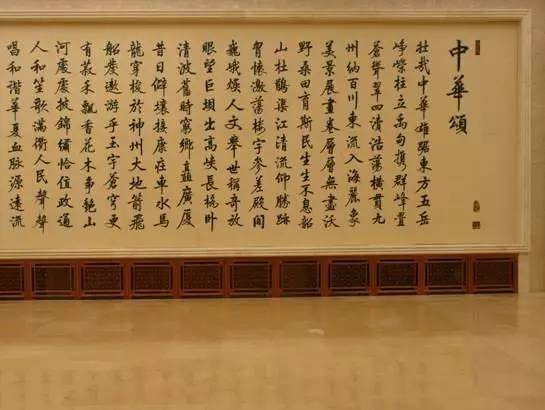 中華頌
壯哉中華雄踞東方五岳
崢嶸柱立禹甸攜群峰疊
蒼聳翠四瀆浩蕩橫貫九
州納百川東流入海麗象
美景展畫卷層層無盡沃
野桑田育斯民生生不息韶
山杜鵑渠江清流仰勝跡
懷激蕩樓宇參差殿閣
巍峨煥人文舉世稱奇放
眼望巨壩出高峽長橋臥
清波舊時窮鄉矗廣廈
昔日僻壤接康莊車水馬
龍穿梭於神州大地箭飛
船度遨游乎玉宇蒼穹更
有菽禾飄香花木爭艷山
河處處披錦繡恰值政通
人和笙歌滿衢人民聲聲
唱和諧華夏血脈源遠流